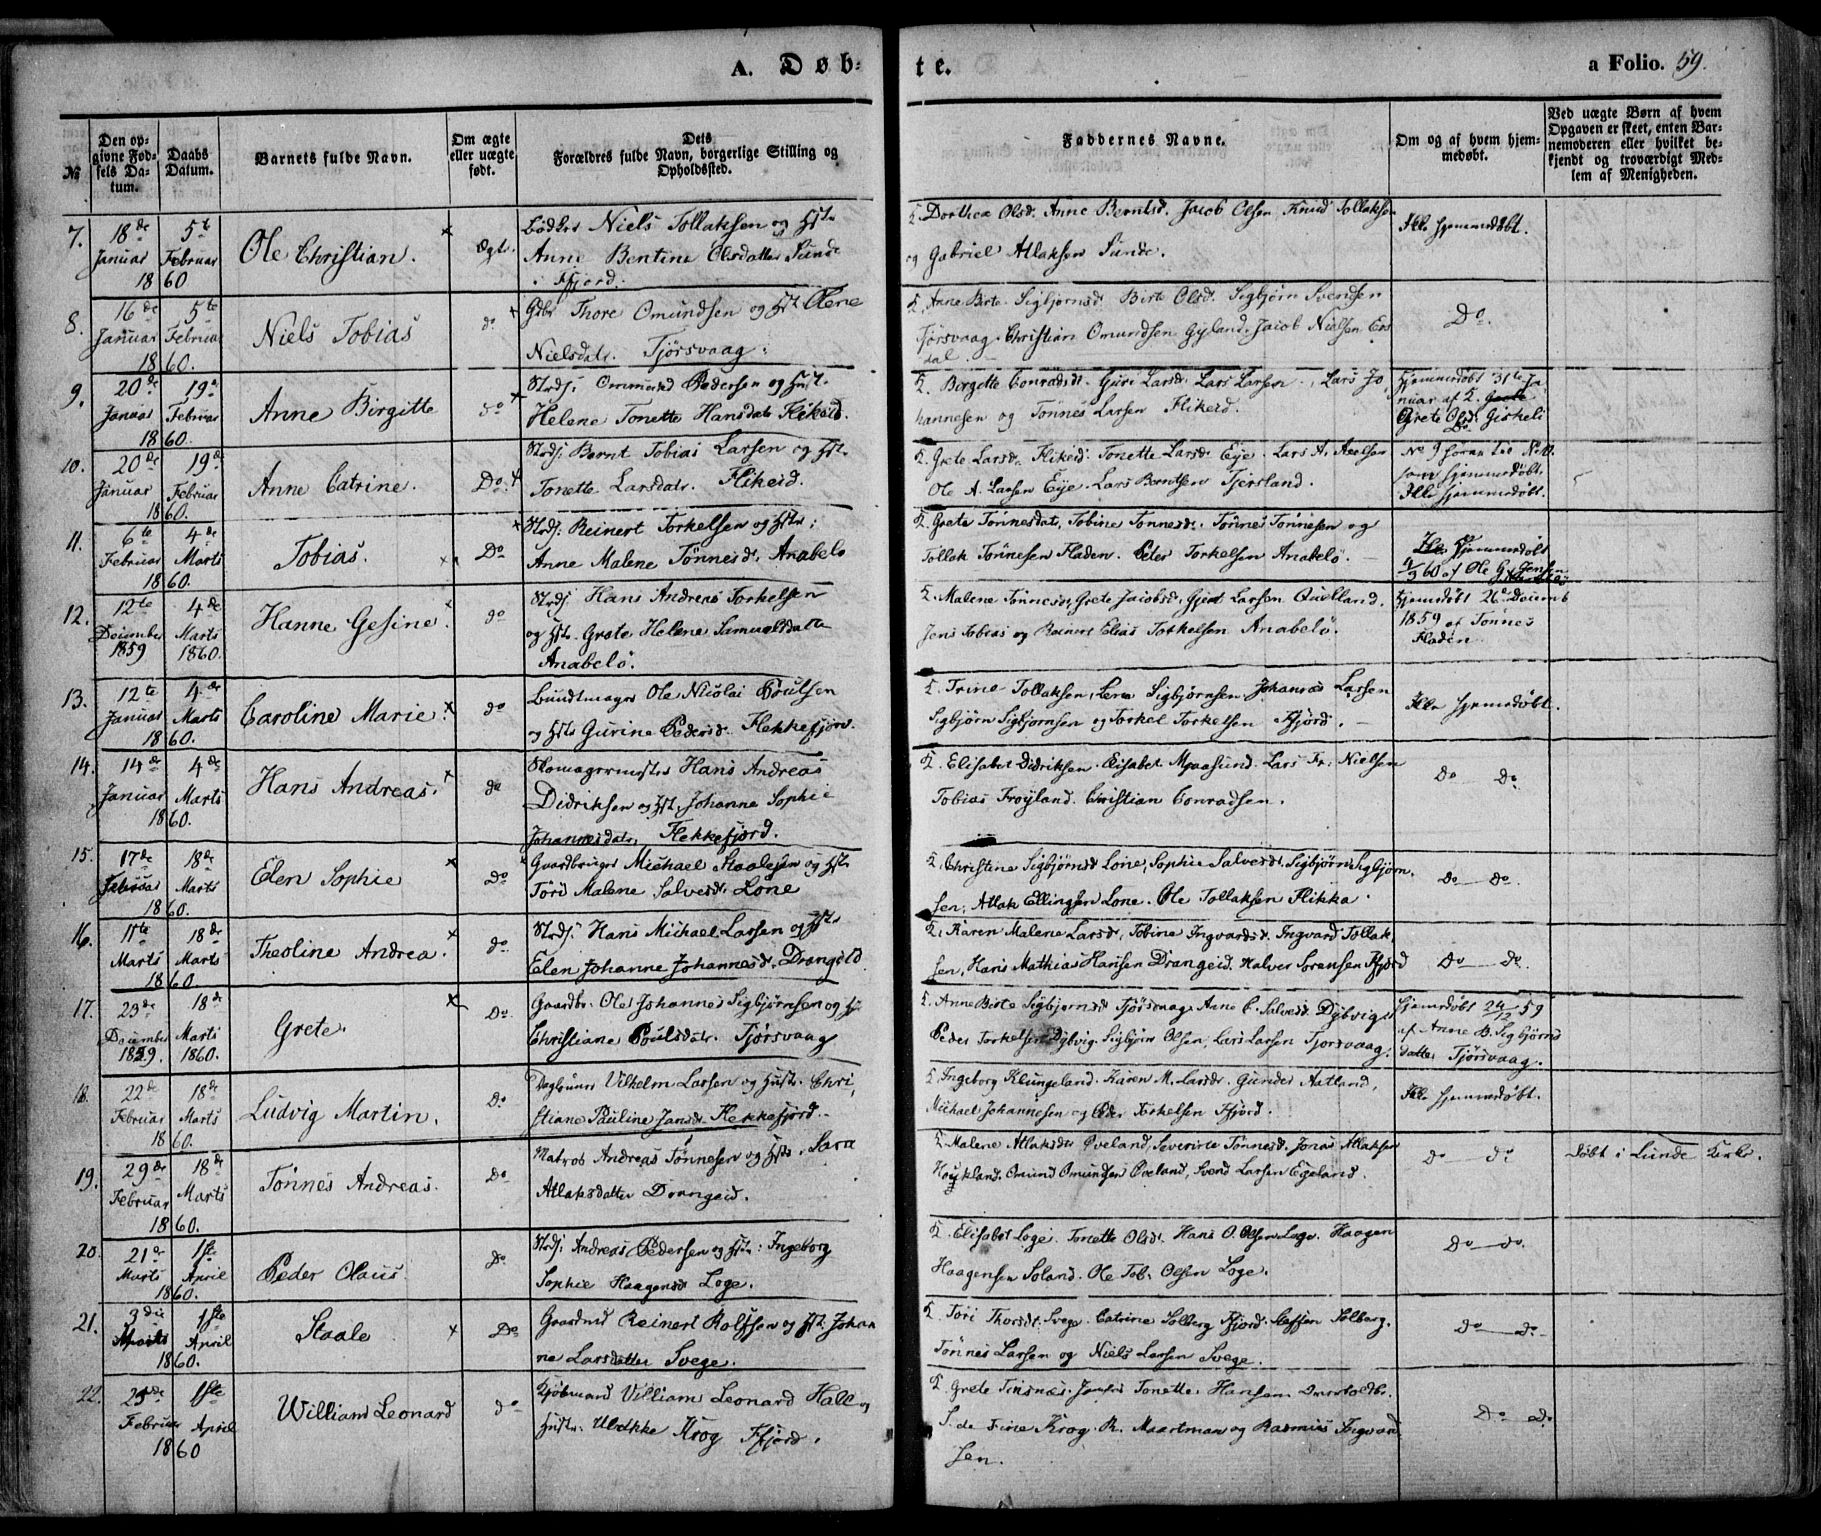 A. Døb-
te.
a Folio. 59.
№
Den op-
givne Fød-
sels Da-
tum.
Daabs
Datum.
Barnets fulde Navn.
Om ægte
eller uægte
født.
Dets
Forældres fulde Navn, borgerlige Stilling og
Opholdssted.
Faddernes Navne.
Om og af hvem hjem-
medøbt.
Ved uægte Børn af hvem
Opgaven er skeet, enten Bar-
nemoderen eller hvilket be-
kjendt og troværdigt Med-
lem af Menigheden.
7. 18de Januar 1860 5te Februar
Ole Christian.
Ægt.
Bødker Niels Tollaksen og Hst.
Anne Bentine Olsdatter Sunde
i Ffjord.
Dorthea Olsd. Anne Berntsd. Jacob Olsen Knud Tollaksen
og Gabriel Atlaksen Sunde.
Ikke hjemmedøbt.
8. 16de Januar 1860. 5te Februar
Niels Tobias
do
Gbr. Thore Omundsen og Hst. Olene
Nielsdatr. Tjørsvaag.
Anne Birte Sigbjørnsd. Birte Olsd. Sigbjørn Svendsen
Tjørsvaag. Christian Omundsen Gyland. Jacob Nielsen Ers
dal.
Do.
9. 20de Januar 1860. 19de Februar
Anne Birgitte
do
Strdsj. Ommund Pedersen og Hust.
Helene Tonette Hansdatr Flikeid.
Birgitte Conradsdr. Guri Larsdr. Lars Larsen. Lars Jo
hannesen og Tønnes Larsen Flikeid.
Hjemmedøbt 31te Ja
nuar af
Grete Olsd. Girkeli
10. 20de Januar 1860. 19de Februar
Anne Catrine.
Do.
Strdsj. Bernt Tobias Larsen og Hst.
Tonette Larsdatr. Flikeid.
Grete Larsdr. Flikeid. Tonette Larsdr Eye. Lars A. Axelsen
Ole A. Larsen Eye. Lars Berntsen Tjersland.
No 9
som hjemmedøbt.
Ikke hjemmedøbt.
11. 6te Februar 1860. 4de Marts
Tobias.
Do
Strdsj. Reinert Torkelsen og Hstr.
Anne Malene Tønnesdr. Anabelø
Grete Tønnesdat, Tobine Tønnesdr. Tønnes Tønnesen og
Tollak Tønnesen Fladen. Peter Torkelsen Anabelø.
Hjemmedøbt
4/3 60 af Ole G. Jensen
12. 12te Deicember 1859 4de Marts 1860.
Hanne Gesine.
do
Strdsj. Hans Andreas Torkelsen
og Hstr. Grete Helene Samuelsdatter
Anabelø.
Malene Tønnesdr, Grete Jacobsd. Gjert Larsen Qvelland.
Jens Tobias og Reinert Elias Torkelsen Anabelø.
Hjemdøbt 26de Decemb
1859 af Tønnes
Fladen.
13. 12te Januar 1860. 4de Marts
Caroline Marie.
do
Bundtmager Ole Nicolai Poulsen
og Hstr Gurine Pedersdr. Flekkefjord.
Trine Tollaksen, Lena Sigbjørnsen. Johannes Larsen
Sigbjørn Sigbjørnsen og Torkel Torkelsen Ffjord.
Ikke hjemdøbt.
14. 14de Januar 1860. 4de Marts
Hans Andreas.
do
Skomagermester Hans Andreas
Didriksen og Hst. Johanne Sophie
Johannesdatr. Flekkefjord.
Elisabet Didriksen. Elisabet Mpaasund. Lars Fr. Nielsen
Tobias Frøyland. Christian Conradsen.
Do Do
15. 17de Februar 1860. 18de Marts
Elen Sophie
Do
Gaardbruger Michael Staalesen og Hstr
Tori Malene Salvesdr. Lone
Christine Sigbjørnsd Lone, Sophie Salvesdr. Sigbjørn Sigbjørn-
sen, Atlak Ellingsen Lone. Ole Tollaksen Flikka.
Do Do.
16. 11te Marts 1860. 18de Marts
Theoline Andrea.
do.
Strdsj. Hans Michael Larsen og Hst
Elen Johanne Johannesdr. Drangeid
Karen Malene Larsd, Tobine Ingvardsd. Ingvard Tollak-
sen, Hans Mathias Hansen Drangeid. Halver Sørensen Ffjord
Do Do.
17. 23de Deicember 1859. 18de Marts 1860.
Grete.
Do
Gaardbr. Ole Johannes Sigbjørnsen og Hu
Christiane Poulsdatr. Tjørsvaag
Anne Birte Sigbjørnsd Tjørsvaag. Anne C. Salvesd. Dybvig.
Peder Torkelsen Dybvig. Sigbjørn Olsen, Lars Larsen Tjørsvaag.
Hjemdøbt 24/12 59
af Anne B. Sigbjørns
datter Tjørsvaag.
18. 22de Februar 1860. 18de Marts
Ludvig Martin.
Do
Daglønner Vilhelm Larsen og Hustr. Chri
stiane Pauline Jansdr. Flekkefjord.
Ingeborg Klungeland. Karen M. Larsdr. Gunder Aatland.
Michael Johannesen og Peder Torkelsen Ffjord.
Ikke hjemmedøbt.
19. 29de Februar 1860. 18de Marts
Tønnes Andreas.
Do
Matros Andreas Tønnesen og Hstr. Sara
Atlaksdatter Drangeid.
Malene Atlaksdtr Øveland, Severine Tønnesd. Jonas Atlaksen
Høykland. Omund Omundsen Øveland, Svend Larsen Egeland.
Do do
Døbt i Lunde Kirke.
20. 21de Marts 1860. 1ste April
Peder Olaus.
Do
Strdsj. Andreas Pedersen og Hstr. Ingeborg
Sophie Haagensd Loge.
Elisabet Loge. Tonette Olsdr. Hans O. Olsen Loge. Haagen
Haagensen Soland. Ole Tob. Olsen Loge.
Do do.
21. 3die Marts 1860. 1ste April
Staale
Do
Gaardmd Reinert Rolfsen og Hst. Johan
ne Larsdatter Svege.
Tori Thorsdr. Svege. Catrine Solberg Ffjord. Steffen Solberg.
Tønnes Larsen og Niels Larsen Svege.
Do Do
22. 25de Februar 1860 1ste April
William Leonard
do
Kjøbmand William Leonard Hall og
Hustr. Uldikke Krog Ffjord.
Grete Tinsnæs. Tonette Hansen
Trine Krog. R. Maartman og Rasmus Ingvard
sen.
Do Do